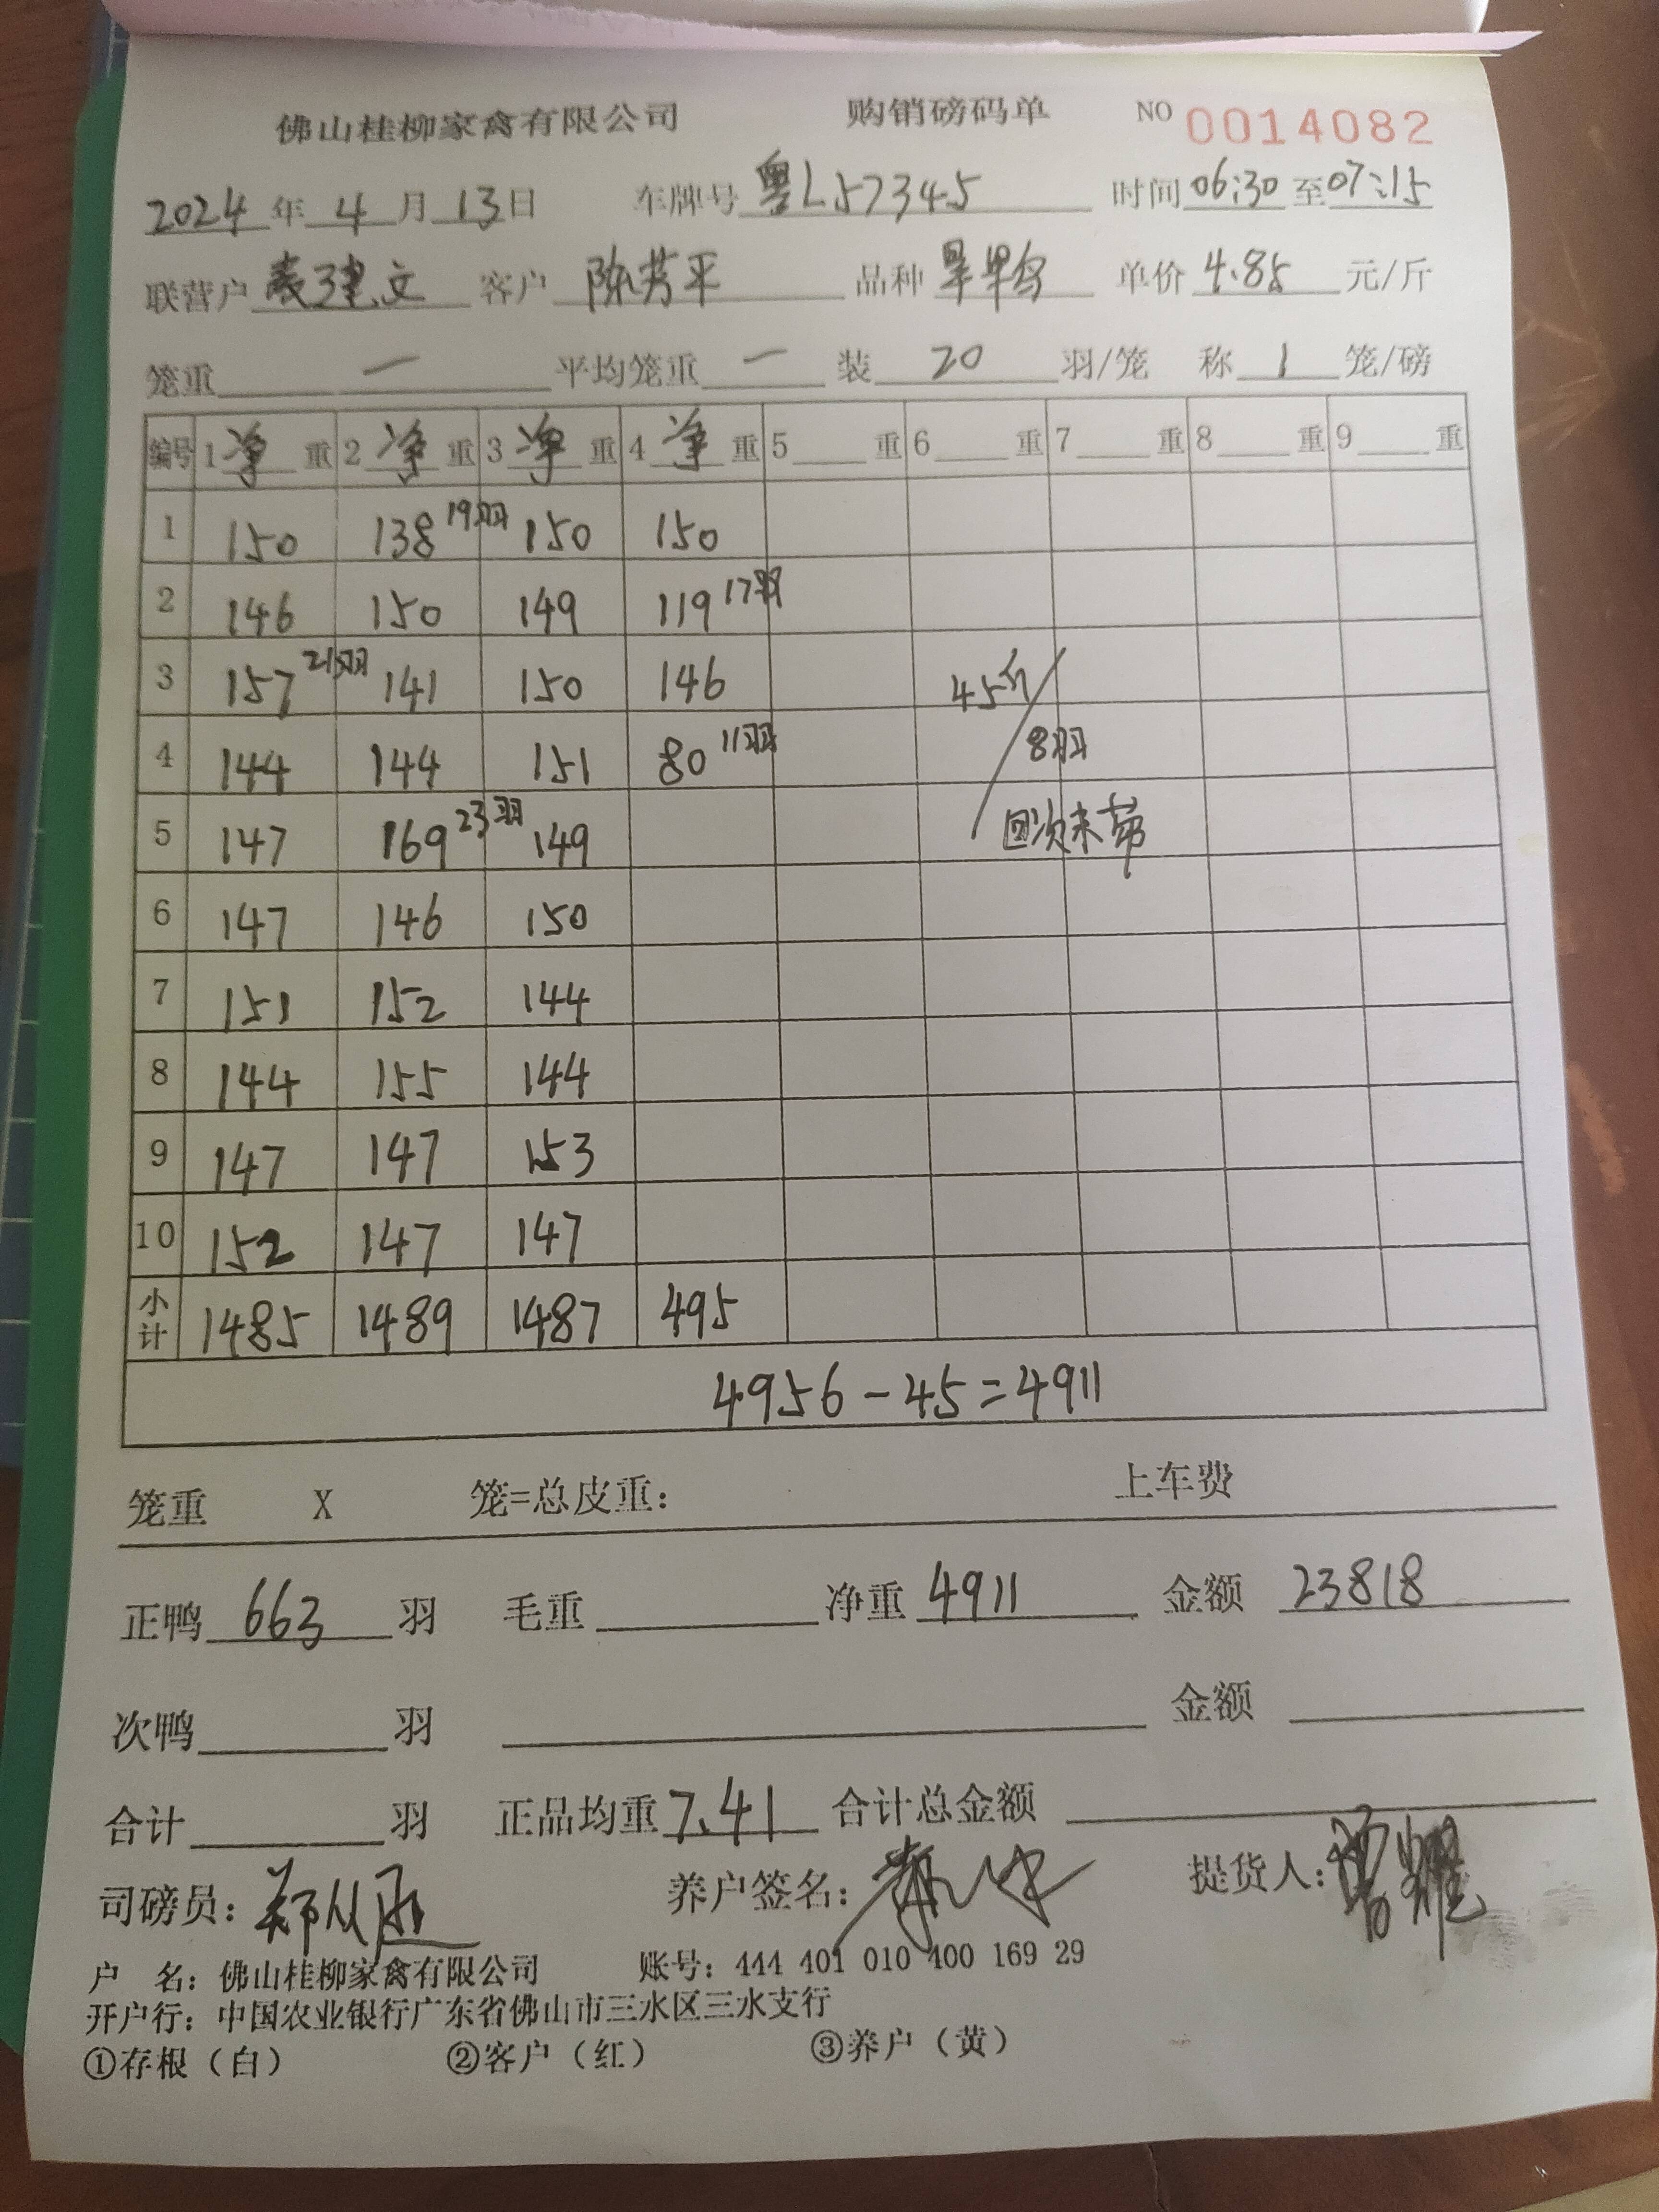 佛山桂柳家禽有限公司 购销磅码单 NO 0014082
2024年4月13日 车牌号粤L57345 时间06:30至07:15
联营户 建文 客户 陈芳平 品种 单价4.85元/斤
笼重 一 平均笼重 一 装 20 羽/笼 称 1 笼/磅
编号 1净重 2净重 3净重 4净重 5重 6重 7重 8重 9重
1 150 138 19羽 150 150
2 146 150 149 119 17羽
3 157 21羽 141 150 146 45斤/
4 144 144 151 80 11羽 8羽
5 147 169 23羽 149 回次未带
6 147 146 150
7 151 152 144
8 144 155 144
9 147 147 153
10 152 147 147
小计 1485 1489 1487 495
4956-45=4911
笼重 X 笼=总皮重： 上车费
正鸭 663 羽 毛重 净重 4911 金额 23818
次鸭 羽 金额
合计 羽 正品均重 7.41 合计总金额
司磅员： 养户签名： 提货人：
户 名：佛山桂柳家禽有限公司 账号：444 401 010 400 169 29
开户行：中国农业银行广东省佛山市三水区三水支行
①存根（白） ②客户（红） ③养户（黄）